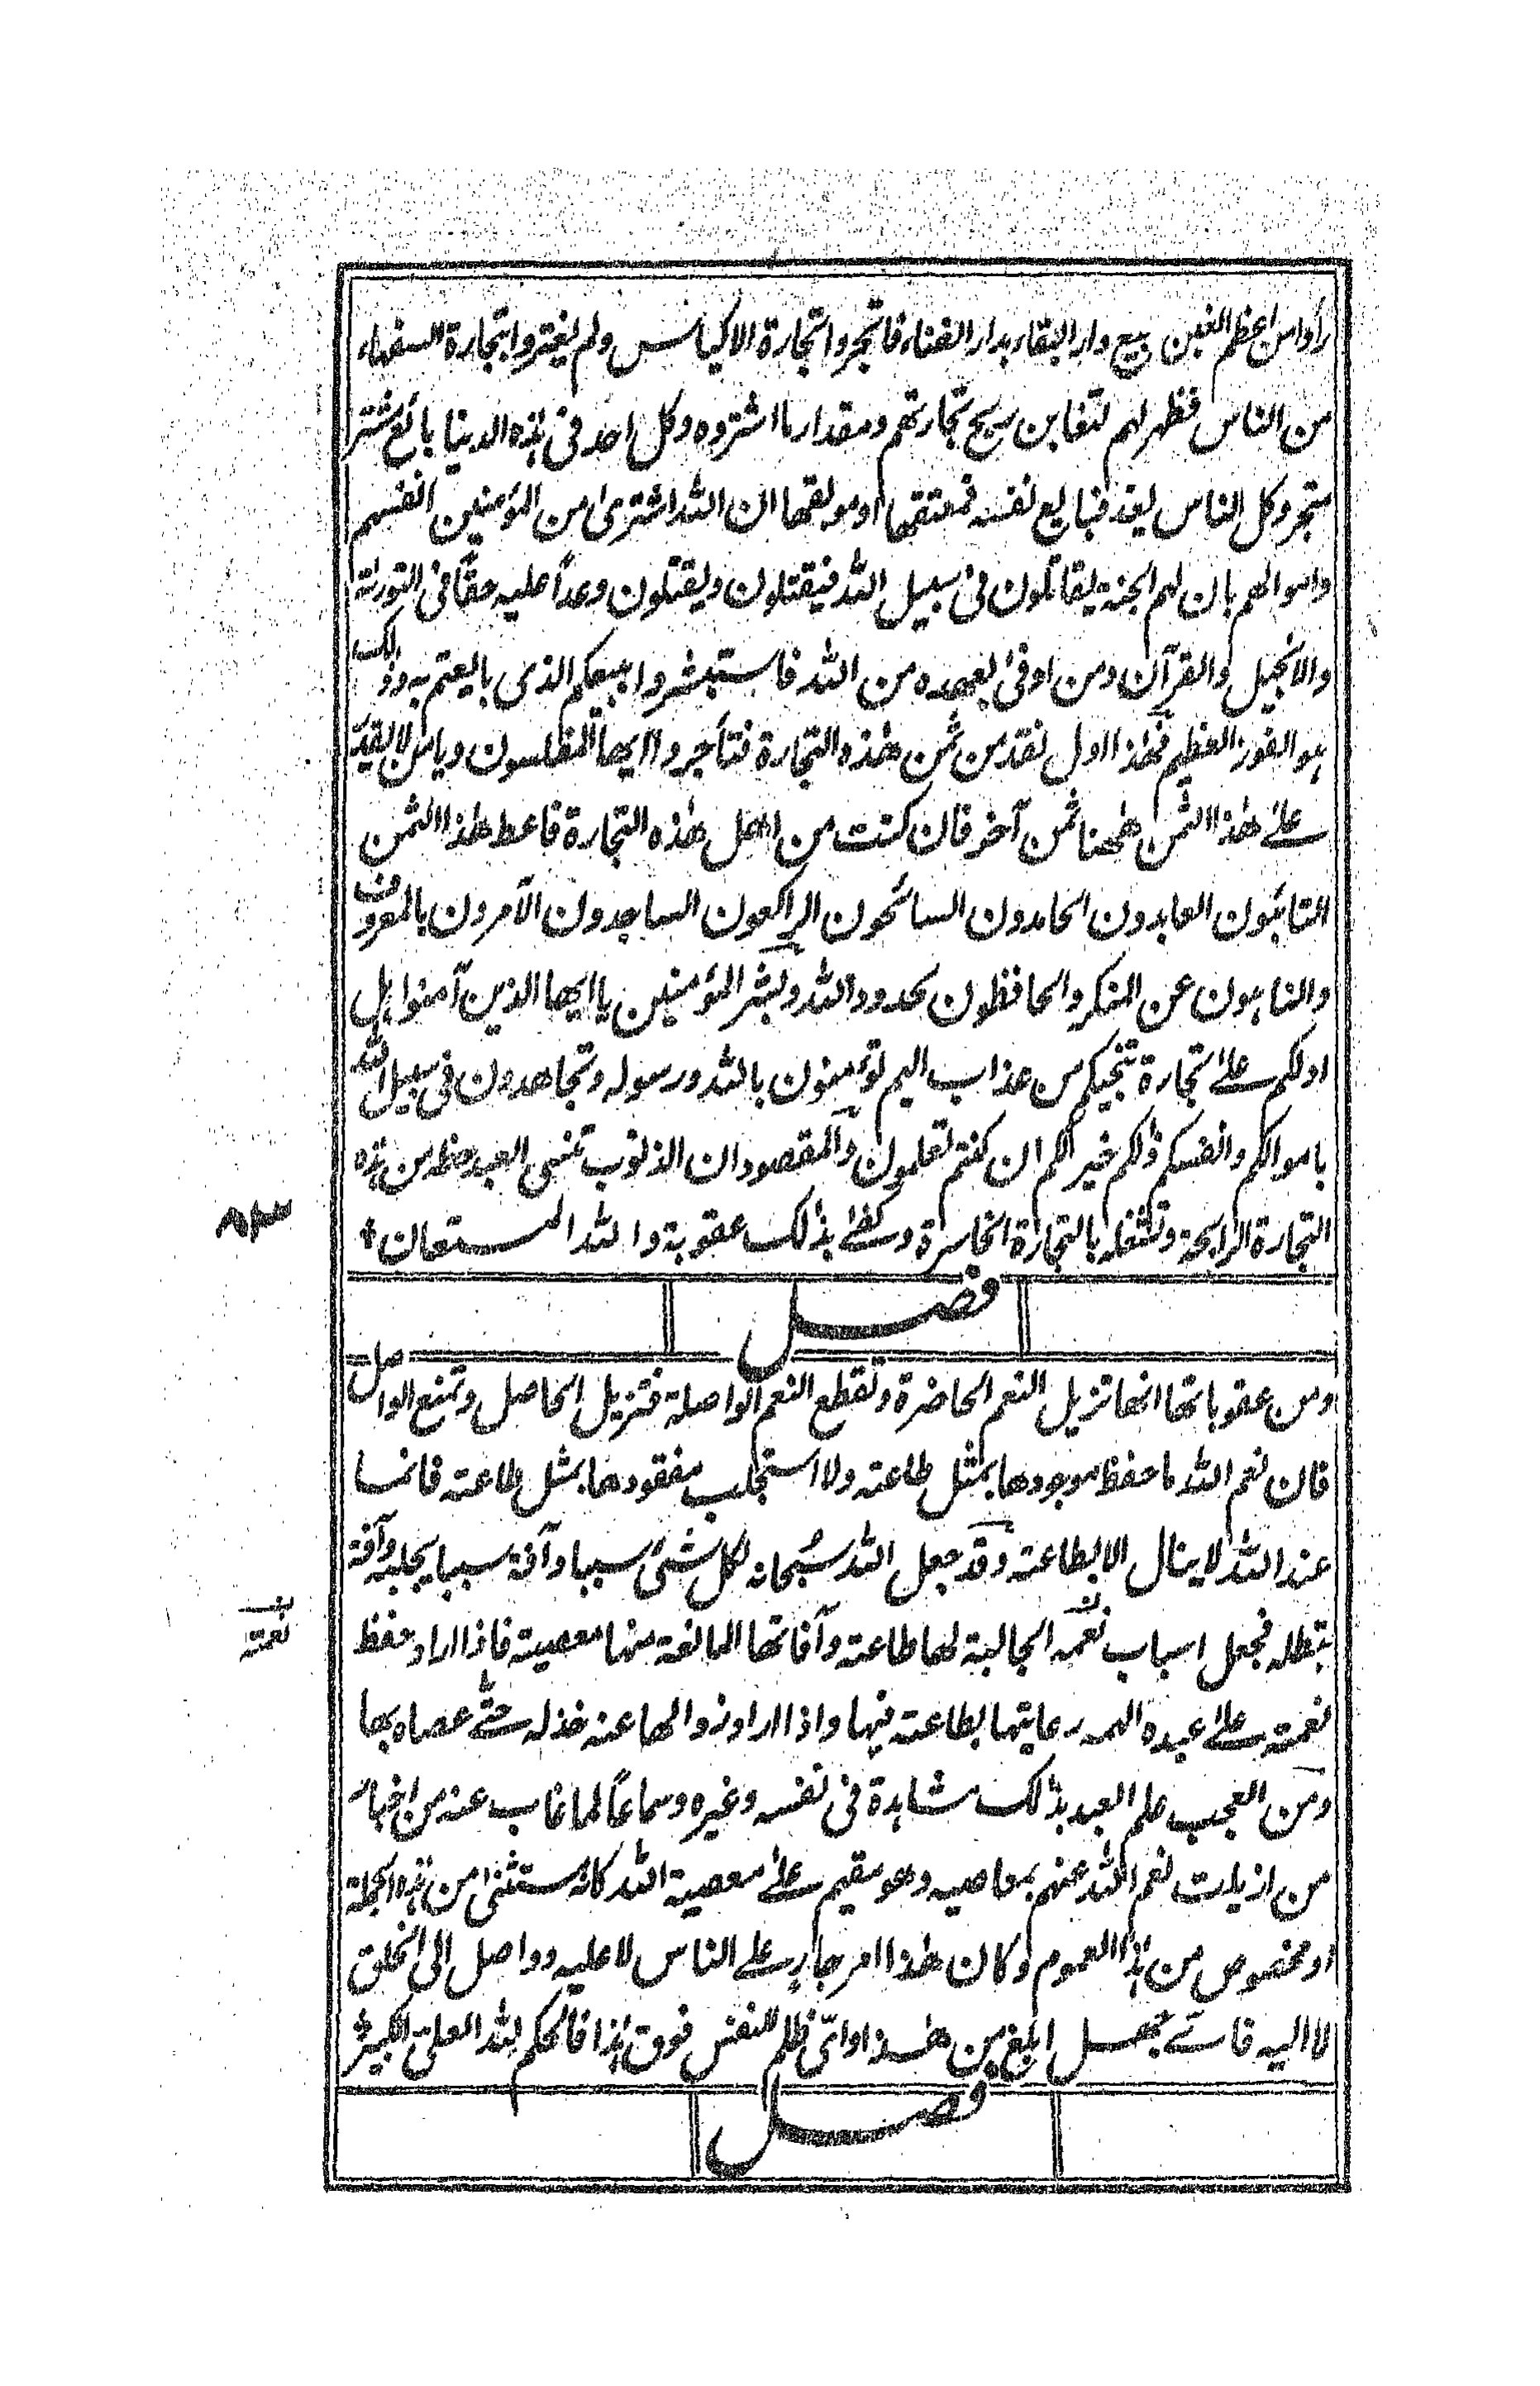 رأوا من اعظم الغبن بيع دار البقاء بدار الفناء فاتجروا تجارة الاكياس ولم يغتروا بتجارة السفهاء
من الناس فظهر لهم لتغابن ربح تجارتهم ومقدار ما اشتروه وكل احد فى هذه الدينا بائع مشتر
متجر وكل الناس يغد فبايع نفسه فمعتقها او موبقها ان الله اشترى من المؤمنين انفسهم
واموالهم بان لهم الجنة يقاتلون فى سبيل الله فيقتلون ويقتلون وعداً عليه حقاً فى التورىة
والانجيل والقرآن ومن اوفى بعهده من الله فاستبشروا ببيعكم الذى بايعتم به وذلك
هو الفوز العظيم فهذا اول نقد من ثمن هذه التجارة فتأجروا ايها المفلسون ويا من لا يقدر
على هذا الثمن ههنا ثمن آخر فان كنت من اهل هذه التجارة فاعط هذا الثمن
التائبون العابدون الحامدون السائحون الراكعون الساجدون الآمرون بالمعروف
والناهون عن المنكر والحافظون لحدود الله وبشر المؤمنين يا ايها الذين آمنوا هل
ادلكم على تجارة تنجيكم من عذاب اليم تؤمنون بالله ورسوله وتجاهدون فى سبيل الله
باموالكم وانفسكم ذلكم خير لكم ان كنتم تعلمون والمقصود ان الذنوب تنسى العبد حظه من هذه
التجارة الرابحة وتشغله بالتجارة الخاسرة وكفى بذلك عقوبة والله المستعان
فصل
ومن عقوباتها انها تزيل النعم الحاضرة وتقطع النعم الواصلة فتزيل الحاصل وتمنع الواصل
فان نعم الله ما حفظ موجودها بمثل طاعته ولا استجلب مفقودها بمثل طاعته فانما
عند الله لا ينال الا بطاعته وقد جعل الله سبحانه لكل شئ سببا وآفة سببا يجلبه وآفة
تبطله فجعل اسباب نعمه الجالبة لها طاعته وآفاتها المانعة منها معصيته فاذا اراد حفظ
نعمته
نعمته على عبده الهمه رعايتها بطاعته فيها واذا اراد زوالها عنه خذله حتى عصاه بها
ومن العجب علم العبد بذلك مشاهدة فى نفسه وغيره وسماعاً لما غاب عنه من اخبار
من ازيلت نعم الله عنهم بمعاصيه وهو مقيم على معصية الله كانه مستثنى من هذه الجملة
او مخصوص من هذا العموم وكان هذا امر جارٍ على الناس لا عليه وواصل الى الخلق
لا اليه فاى جهل ابلغ من هذا واىّ ظلم للنفس فوق هذا فالحكم لله العلى الكبير
فصل